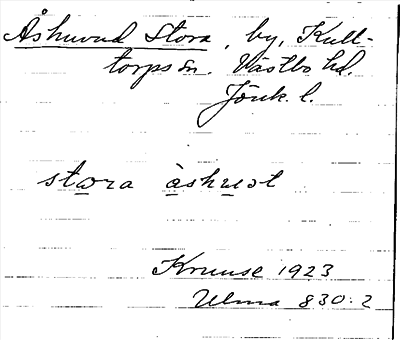 Åshuvud Stora, by, Kull-
torps sn. Västbo hd.
Jönk. l.
stora åshuvt
Kruuse 1923
Ulma 830:2